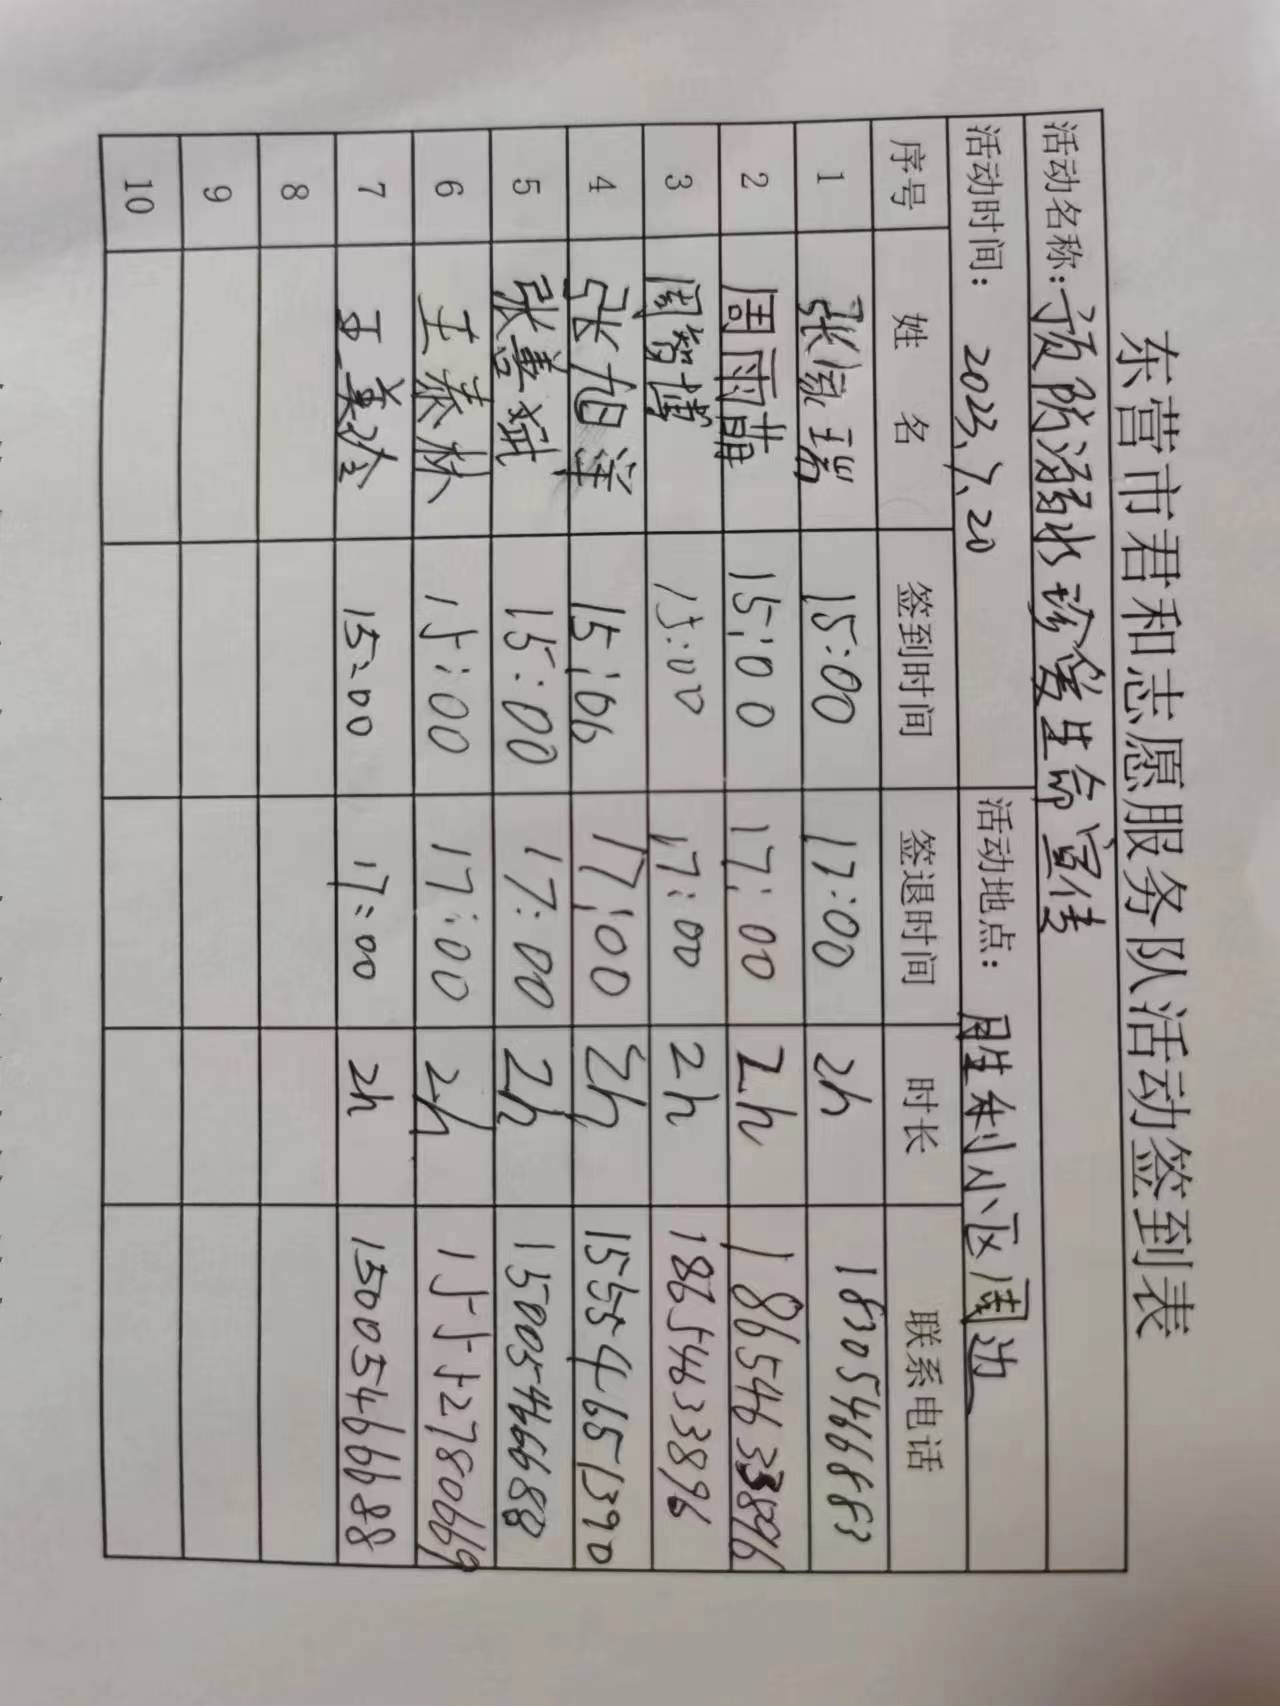 东营市君和志愿服务队活动签到表
活动名称：预防溺水珍爱生命宣传
活动时间： 2023.7.20 活动地点： 胜利小区周边
序号 姓 名 签到时间 签退时间 时长 联系电话
1 张瑞 15:00 17:00 2h 18305466683
2 周雨萌 15:00 17:00 2h 18654633896
3 周智博 15:00 17:00 2h 18654633896
4 张旭洋 15:00 17:00 2h 15554651390
5 张善斌 15:00 17:00 2h 15005466688
6 王泰林 15:00 17:00 2h 15552780669
7 王美玲 15:00 17:00 2h 15005466688
8
9
10